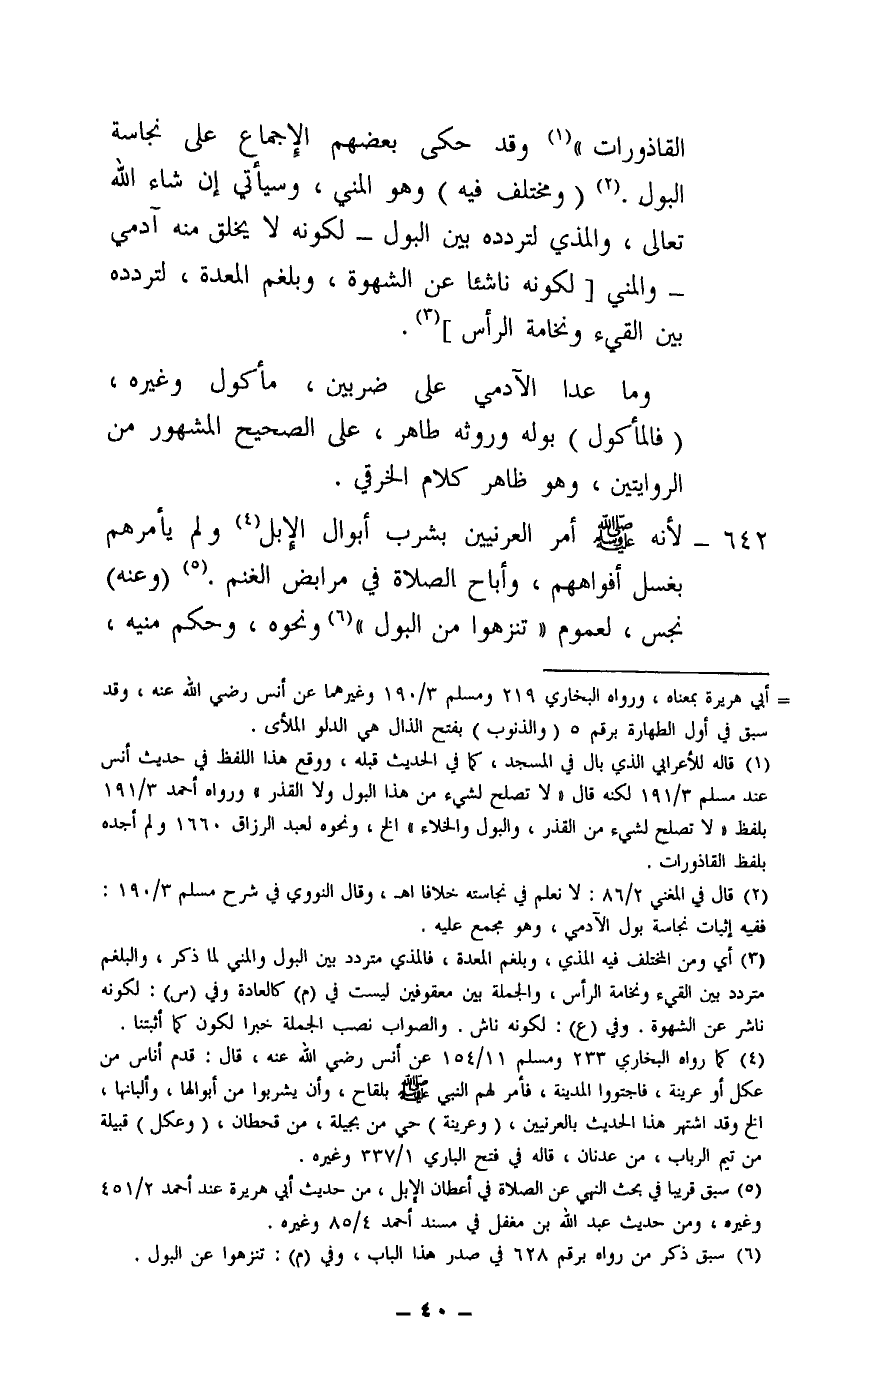 القاذورات »(١) وقد حكى بعضهم الإجماع على نجاسة
البول .(٢) ( ومختلف فيه ) وهو المني ، وسيأتي إن شاء الله
تعالى ، والمذي لتردده بين البول ــ لكونه لا يخلق منه آدمي
ــ والمني [ لكونه ناشئا عن الشهوة ، وبلغم المعدة ، لتردده
بين القيء ونخامة الرأس ](٣) .
وما عدا الآدمي على ضربين ، مأكول وغيره ،
( فالمأكول ) بوله وروثه طاهر ، على الصحيح المشهور من
الروايتين ، وهو ظاهر كلام الخرقي .
٦٤٢ ــ لأنه ﷺ أمر العرنيين بشرب أبوال الإبل(٤) ولم يأمرهم
بغسل أفواههم ، وأباح الصلاة في مرابض الغنم .(٥) (وعنه)
نجس ، لعموم « تنزهوا من البول »(٦) ونحوه ، وحكم منيه ،
= أبي هريرة بمعناه ، ورواه البخاري ٢١٩ ومسلم ١٩٠/٣ وغيرهما عن أنس رضي الله عنه ، وقد
سبق في أول الطهارة برقم ٥ ( والذنوب ) بفتح الذال هي الدلو الملأى .
(١) قاله للأعرابي الذي بال في المسجد ، كما في الحديث قبله ، ووقع هذا اللفظ في حديث أنس
عند مسلم ١٩١/٣ لكنه قال « لا تصلح لشيء من هذا البول ولا القذر » ورواه أحمد ١٩١/٣
بلفظ « لا تصلح لشيء من القذر ، والبول والخلاء » الخ ، ونحوه لعبد الرزاق ١٦٦٠ ولم أجده
بلفظ القاذورات .
(٢) قال في المغني ٨٦/٢ : لا نعلم في نجاسته خلافا اهـ ، وقال النووي في شرح مسلم ١٩٠/٣ :
ففيه إثبات نجاسة بول الآدمي ، وهو مجمع عليه .
(٣) أي ومن المختلف فيه المذي ، وبلغم المعدة ، فالمذي متردد بين البول والمني لما ذكر ، والبلغم
متردد بين القيء ونخامة الرأس ، والجملة بين معقوفين ليست في (م) كالعادة وفي (س) : لكونه
ناشر عن الشهوة . وفي (ع) : لكونه ناش . والصواب نصب الجملة خبرا لكون كما أثبتنا .
(٤) كما رواه البخاري ٢٣٣ ومسلم ١٥٤/١١ عن أنس رضي الله عنه ، قال : قدم أناس من
عكل أو عرينة ، فاجتووا المدينة ، فأمر لهم النبي ﷺ بلقاح ، وأن يشربوا من أبوالها ، وألبانها ،
الخ وقد اشتهر هذا الحديث بالعرنيين ، ( وعرينة ) حي من بجيلة ، من قحطان ، ( وعكل ) قبيلة
من تيم الرباب ، من عدنان ، قاله في فتح الباري ٣٣٧/١ وغيره .
(٥) سبق قريبا في بحث النهي عن الصلاة في أعطان الإبل ، من حديث أبي هريرة عند أحمد ٤٥١/٢
وغيره ، ومن حديث عبد الله بن مغفل في مسند أحمد ٨٥/٤ وغيره .
(٦) سبق ذكر من رواه برقم ٦٢٨ في صدر هذا الباب ، وفي (م) : تنزهوا عن البول .
ــ ٤٠ ــ